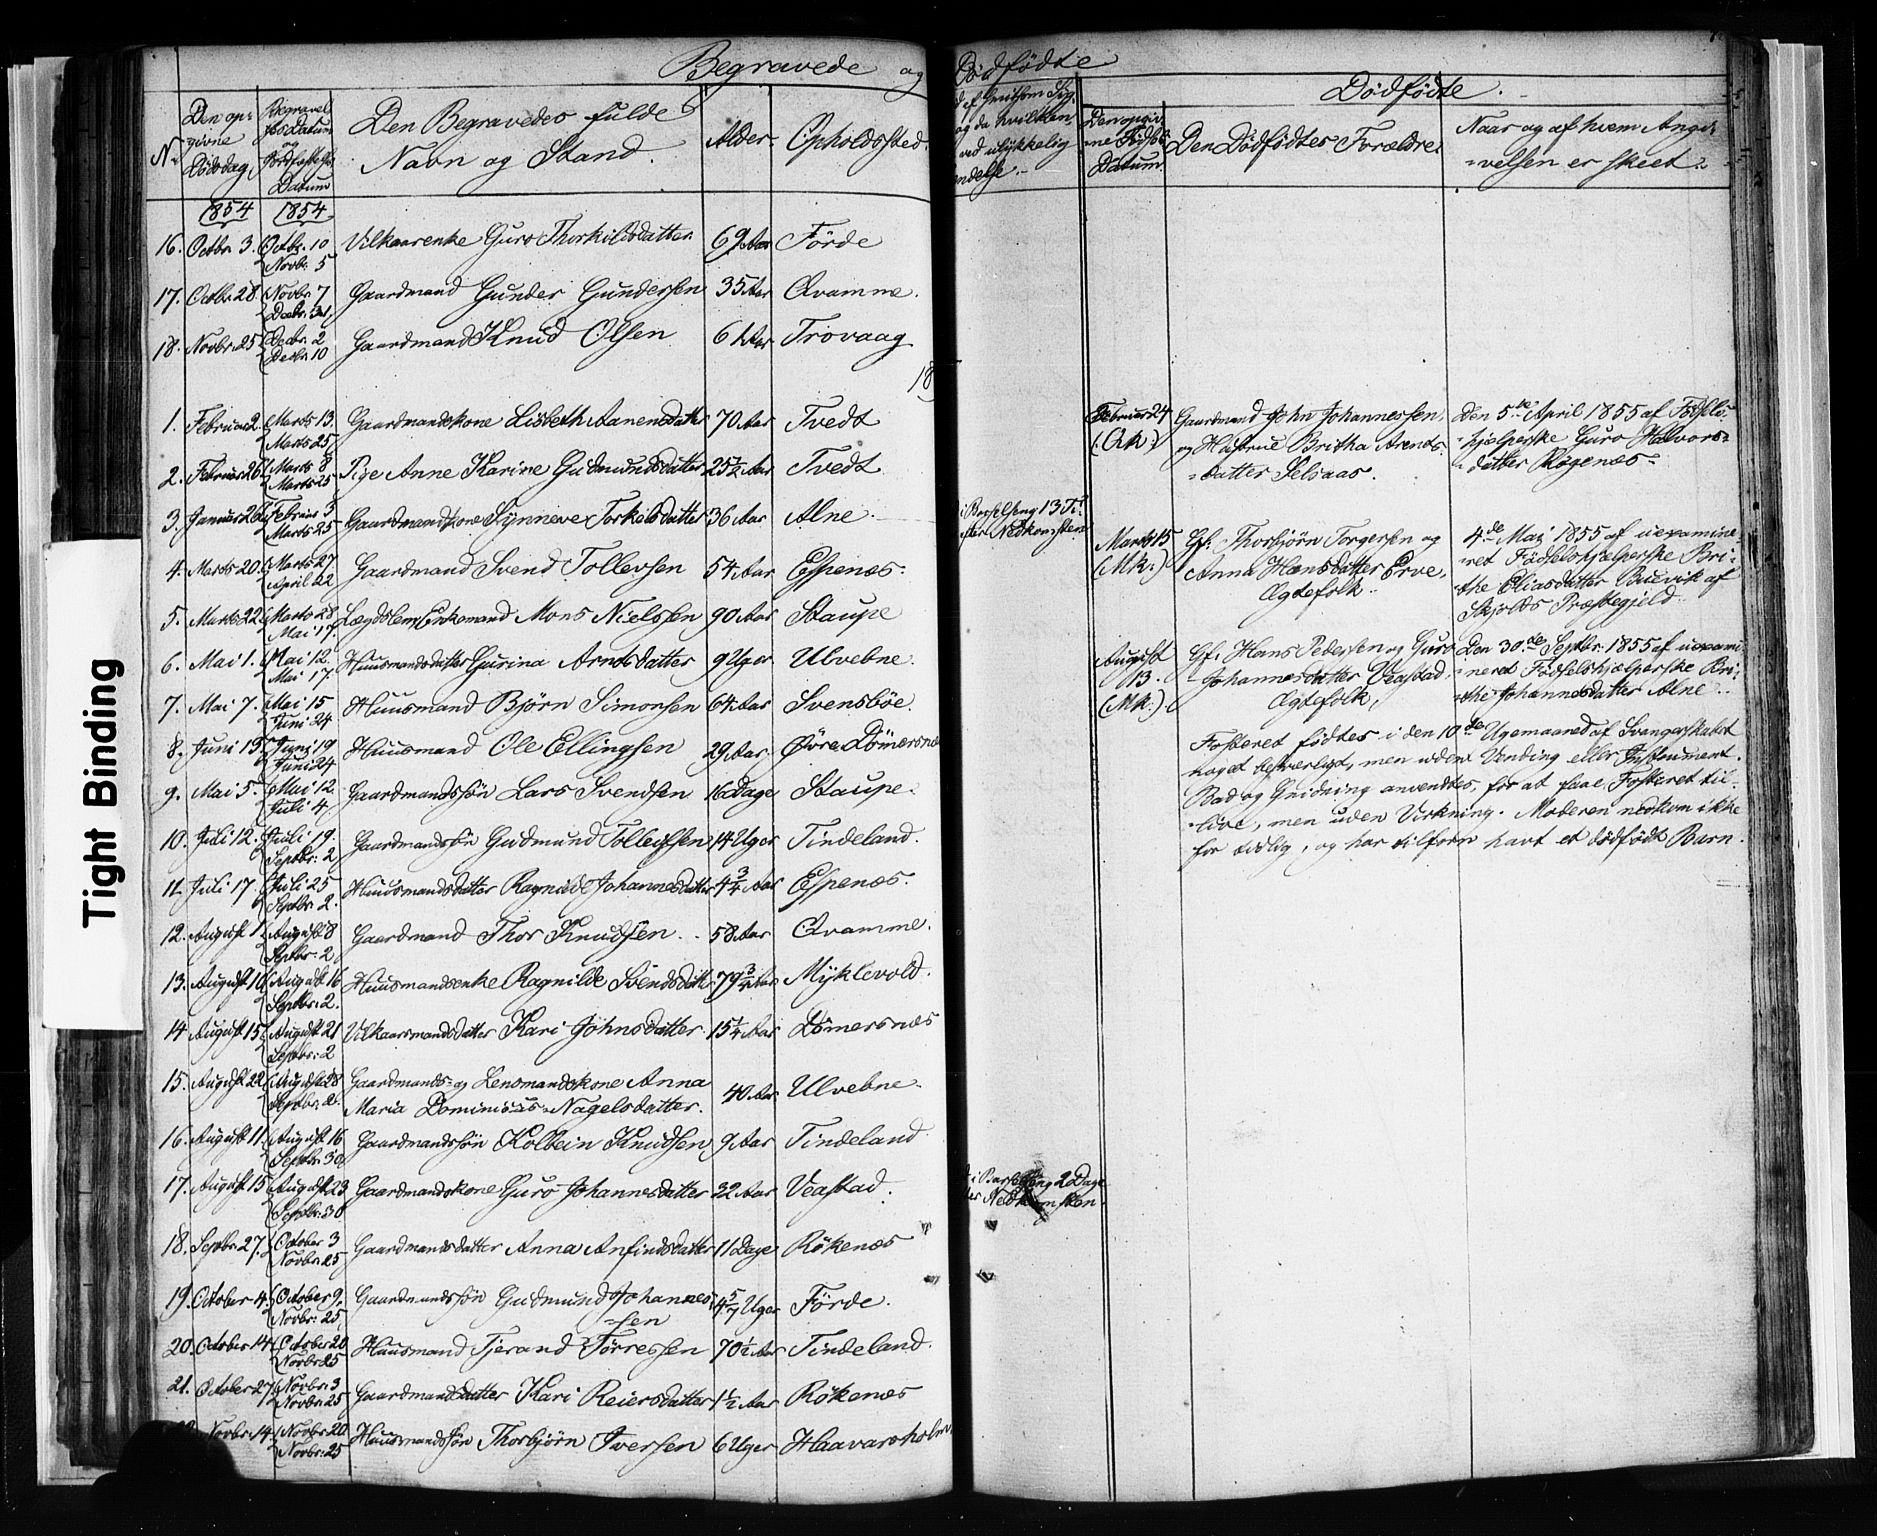 Begravede og
Dödfödte
N.
Den op-
givne
Dödsdag.
Begravel
sesDatum
og
Jordfæstelses
Datum
Den Begravedes fulde
Navn og Stand.
Alder.
Opholdssted.
1854 1854
16. Octbr. 3. Octbr. 10 Vilkaarenke Guro Thorkildsdatter. 69 Aar Förde
Novbr. 5
17. Octbr. 28. Novbr. 7 Gaardmand Gunder Gundersen 35 Aar Qvamme.
Decbr. 31
18. Novbr. 25 Decbr. 2 Gaardmand Knud Olsen 61 Aar Trovaag
Decbr. 10
18
1. Februar 2. Marts 13. Gaardmandskone Lisbeth Aanensdatter 70 Aar Tvedt
Marts 25
2. Februar 26 Marts 8 Pige Anne Karine Gudmundsdatter 25 1/2 Aar Tvedt
Marts 25
3. Januar 26 Februar 3 Gaardmandskone Synneve Torkelsdatter 36 Aar Alne.
Marts 25
4. Marts 20. Marts 27 Gaardmand Svend Tollevsen 54 Aar Espenæs.
April 22
5. Marts 22 Marts 28 Lægdslem, Enkemand Mons Nielssen 90 Aar Staupe
Mai 17.
6. Mai 1. Mai 12. Huusmandsdatter Gurina Arntsdatter 9 Uger Ulvebne.
Mai 17.
7. Mai 7. Mai 15 Huusmand Björn Simonsen 64 Aar Svensböe.
Juni 24
8. Juni 13. Juni 19 Huusmand Ole Ellingsen 29 Aar. Øvre Dömersnæs
Juni 24
9. Mai 5. Mai 12. Gaardmandssön Lars Svendsen 16 Dage Staupe.
Juli 4
10. Juli 12. Juli 19. Gaardmandssön Gudmund Tolleifsen 14 Uger Tindeland.
Septbr. 2
11. Juli 17. Juli 25 Huusmandsdatter Ragnilde Johannesdatter 4 3/4 Aar Espenæs.
Septbr. 2.
12. August 1. August 8 Gaardmand Thor Knudsen. 58 Aar Qvamme.
Septbr. 2
13. August 10 August 16 Huusmandsenke Ragnilde Svendsdatter 79 3/4 Aar Myklevold.
Septbr. 2.
14 August 15 August 21 Vilkaarsmandsdatter Kari Johnsdatter. 15 1/4 Aar Dömersnæs
Septbr. 2
15. August 22 August 28 Gaardmands- og Lensmandskone Anna 40 Aar Ulvebne.
Septbr. 2. Maria Dominicus-Nagelsdatter.
16. August 11. August 16 Gaardmandssön Kolbein Knudsen 9 Aar Tindeland
Septbr. 30
17. August 15 August 23 Gaardmandskone Guro Johannesdatter 32 Aar Veastad.
Septbr. 30
18. Septbr. 27. October 3 Gaardmandsdatter Anna Anfindsdatter 11 Dage Rökenæs
Novbr. 25
19. October 4. October 9. Gaardmandssön Gudmund Johannes- 4 5/7 Uger Förde.
Novbr. 25 -sen
20. October 14. October 20 Huusmand Tjerand Törressen 70 1/2 Aar Tindeland.
Novbr. 25
21. October 27. Novbr. 3 Gaardmandsdatter Kari Reiersdatter 1 1/2 Aar Rökenæs
Novbr. 25
Novbr. 14. Novbr. 20 Huusmandssön Thorbjörn Iversen 6 Uger Haavarsholm
Novbr. 25
og da hvilken,
ved ulykkelig
ændelse.
i Barselseng 13 Ti.
efter Nedkomsten
i Barselseng 2 Dage
Nedkomsten.
Dödfödte.
Den opgiv
ne Födsels
Datum.
Den Dödfödtes Forældre.
Naar og af hvem Angi-
-velsen er skeet.
Februar 24 Gaardmand John Johannessen, Den 5te April 1855 af Födsels-
(Qk.) og Hustrue Britha Arents- -hjælperske Guro Halvors-
-datter Selsaas. -datter Rögenæs.
Marts 15 Gf. Thorbjörn Torgersen og 4de Mai 1855 af uexamine-
(Mk.) Anna Hansdatter Erve, -ret Födselshjælperske Bri-
Ægtefolk. -the Eliasdatter Buevik af
Skjolds Præstegjeld.
August Gf. Hans Pedersen og Guro Den 30de Septbr. 1855 af uexami-
13. Johannesdatter Veastad, neret Födselshjælperske Bri-
(Mk.). Ægtefolk, -the Johannesdatter Alne.
Fosteret födtes i den 10de Ugemaaned af Svangerskabet
noget besværligt, men uden Vending eller Instrument.
Bad og Gnidning anvendtes, for at faae Fosteret til-
-live, men uden Virkning. Moderen nedkom ikke
for tidlig, og har tilforn havt et dödfödt Barn.
Tight Binding